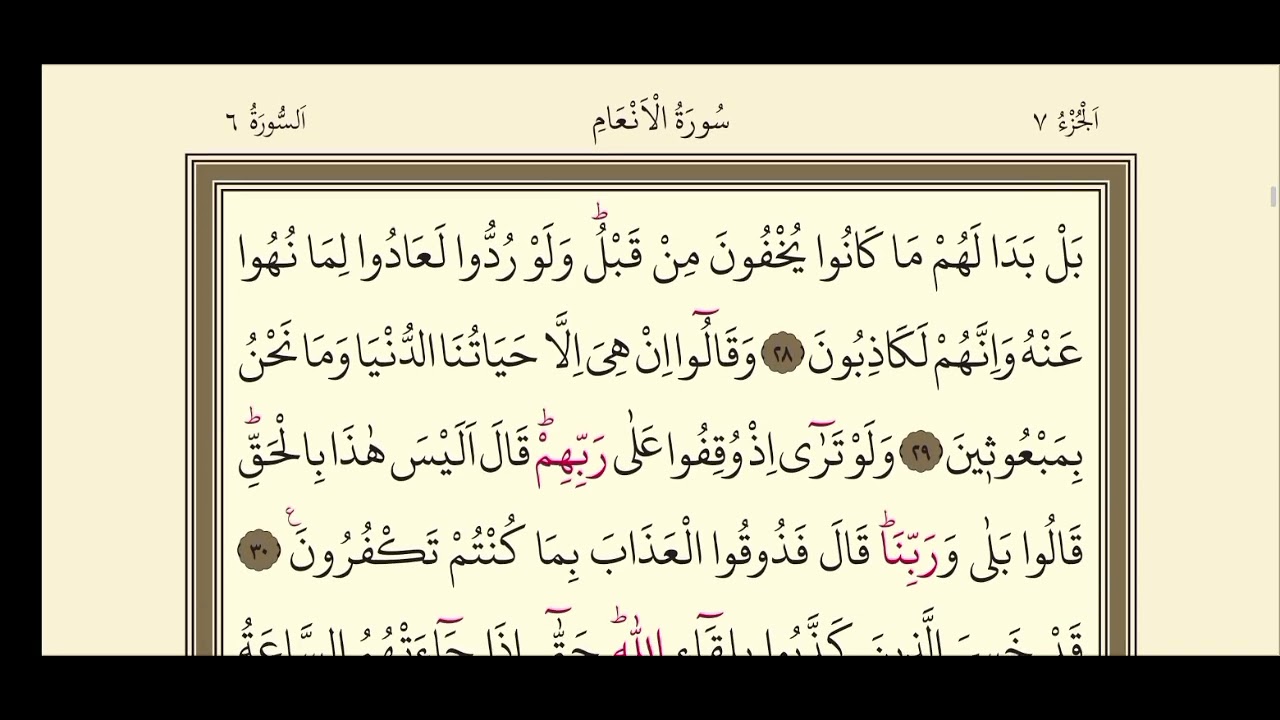 اَلْجُزْءُ ٧ سُورَةُ الْاَنْعَامِ اَلسُّورَةُ ٦
بَلْ بَدَا لَهُمْ مَا كَانُوا يُخْفُونَ مِنْ قَبْلُۜ وَلَوْ رُدُّوا لَعَادُوا لِمَا نُهُوا
عَنْهُ وَاِنَّهُمْ لَكَاذِبُونَ ٢٨ وَقَالُٓوا اِنْ هِيَ اِلَّا حَيَاتُنَا الدُّنْيَا وَمَا نَحْنُ
بِمَبْعُوث۪ينَ ٢٩ وَلَوْ تَرٰٓى اِذْ وُقِفُوا عَلٰى رَبِّهِمْؕ قَالَ اَلَيْسَ هٰذَا بِالْحَقِّؕ
قَالُوا بَلٰى وَرَبِّنَاؕ قَالَ فَذُوقُوا الْعَذَابَ بِمَا كُنْتُمْ تَكْفُرُونَ ع ٣٠
قَدْ خَسِرَ الَّذ۪ينَ كَذَّبُوا بِلِقَٓاءِ اللّٰهِؕ حَتّٰٓى اِذَا جَٓاءَتْهُمُ السَّاعَةُ